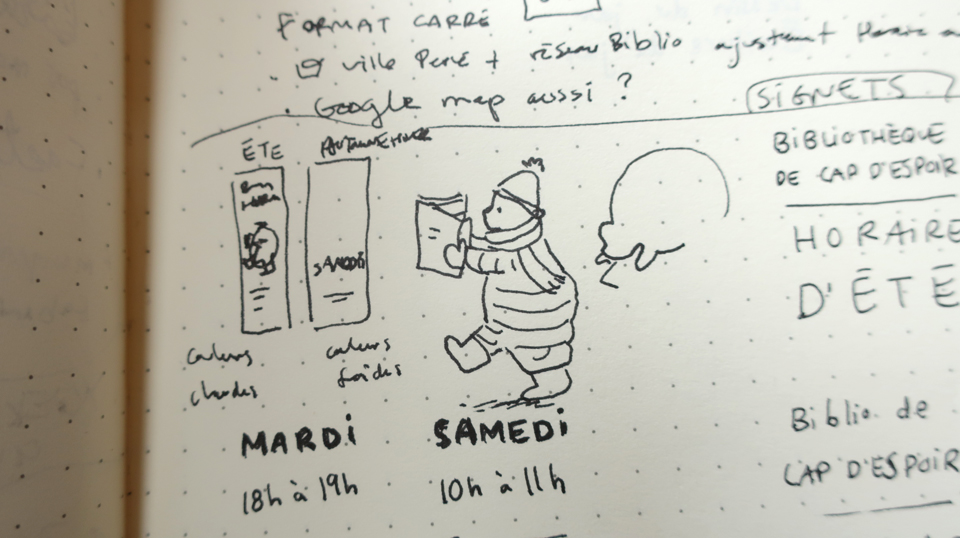 FORMAT CARRÉ
ville Percé + réseau Biblio ajustent
Google map aussi ?
SIGNETS
ÉTÉ
BIBLIOTHÈQUE
DE CAP D'ESPOIR
HORAIRE
D'ÉTÉ
SAMEDI
couleurs
chaudes
couleurs
froides
MARDi
SAMEDi
18h à 19h
10h à 11h
Biblio de
CAP D'ESPOIR